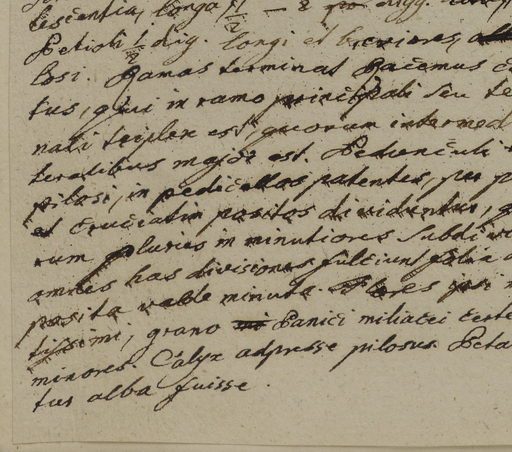 escentia, longa
Petioli 1/2 dig. longi et breviores,
losi. Ramos terminat Racemus
tus, qui in ramo principali seu te
nali triplex est, quorum intermed
teralibus major est. Pedunculi
pilosi, in pedicellos patentes, per p
et cruciatim positos dividuntur, q
rum plures in minutiores subdiv
omnes has divisiones fulciunt folia
posita valde minuta. Flores
tissimi, grano Panici miliacei certe
minores. Calyx adpresse pilosus. Peta
tus alba fuisse.